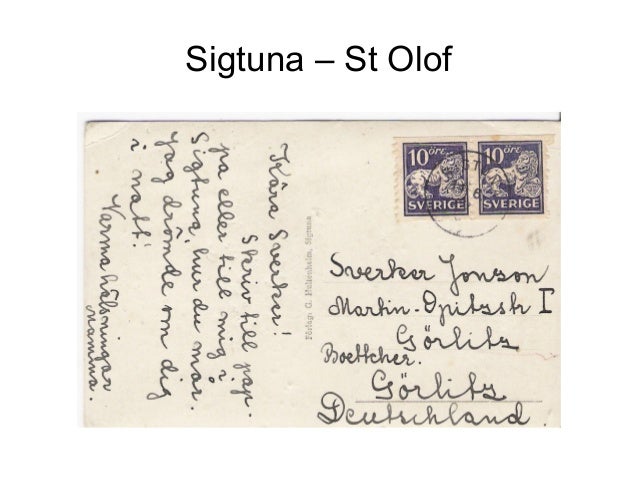 Sigtuna – St Olof
Kära Sverker!
Skriv till pap-
pa eller till mig i
Sigtuna, hur du mår.
Jag drömde om dig
i natt!
Varma hälsningar
Mamma.
Förlag: G. Holzenhalm, Sigtuna
10 ÖRE
SVERIGE
10 ÖRE
SVERIGE
Sverker Jonzon
Martin-Opitzstr I
Görlitz
Boettcher.
Görlitz
Deutschland.